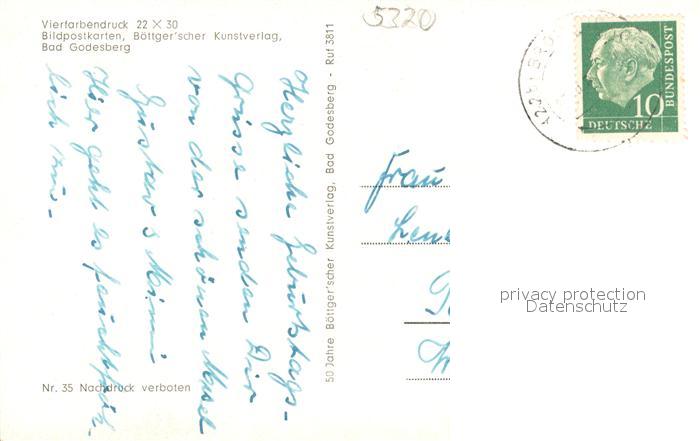 Vierfarbendruck 22 X 30
Bildpostkarten, Böttger'scher Kunstverlag,
Bad Godesberg
5320
Herzliche Geburtstags-
Grüsse senden Dir
von der schönen Mosel
Gustav & Mimi
Hier geht es feuchtfröh-
lich zu.-
50 Jahre Böttger'scher Kunstverlag, Bad Godesberg - Ruf 3811
Nr. 35 Nachdruck verboten
10
DEUTSCHE
BUNDESPOST
Frau
privacy protection
Datenschutz